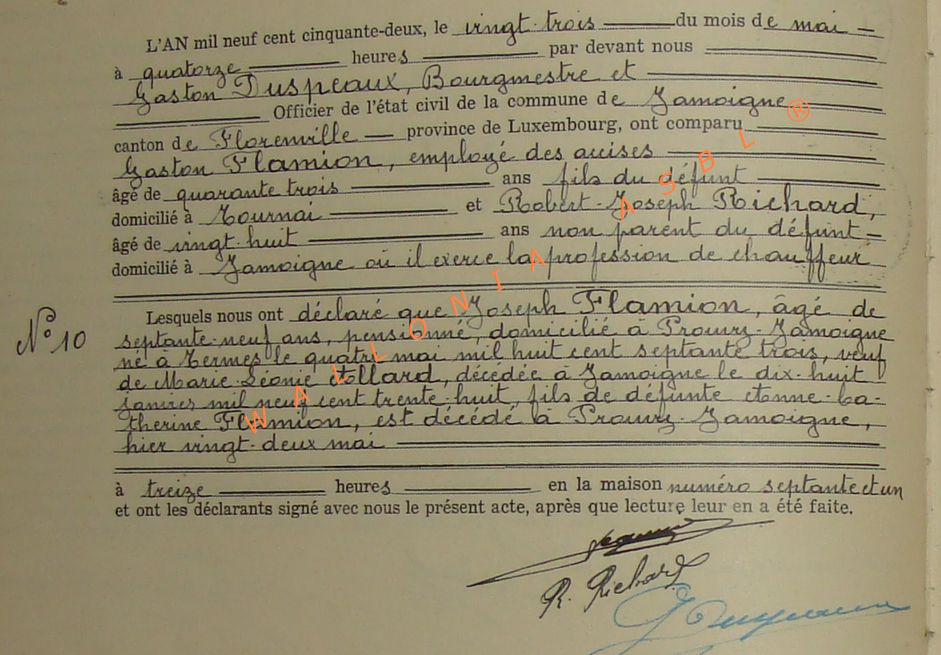 L'AN mil neuf cent cinquante-deux, le vingt trois du mois de mai
à quatorze heures par devant nous
Gaston Duspeaux, Bourgmestre et
Officier de l'état civil de la commune de Jamoigne
canton de Florenville province de Luxembourg, ont comparu
Gaston Flamion, employé des accises
âgé de quarante trois ans fils du défunt
domicilié à Tournai et Robert-Joseph Richard,
âgé de vingt-huit ans non parent du défunt
domicilié à Jamoigne où il exerce la profession de chauffeur
N° 10
Lesquels nous ont déclaré que Joseph Flamion, âgé de
septante-neuf ans, pensionné, domicilié à Prouvy-Jamoigne
né à Termes le quatre mai mil huit cent septante trois, veuf
de Marie-Léonie Collard, décédée à Jamoigne le dix-huit
janvier mil neuf cent trente-huit, fils de défunte Anne-Ca-
therine Flamion, est décédé à Prouvy-Jamoigne,
hier vingt-deux mai
à treize heures en la maison numéro septante et un
et ont les déclarants signé avec nous le présent acte, après que lecture leur en a été faite.
R. Richard
WALLONIA ASBL ®